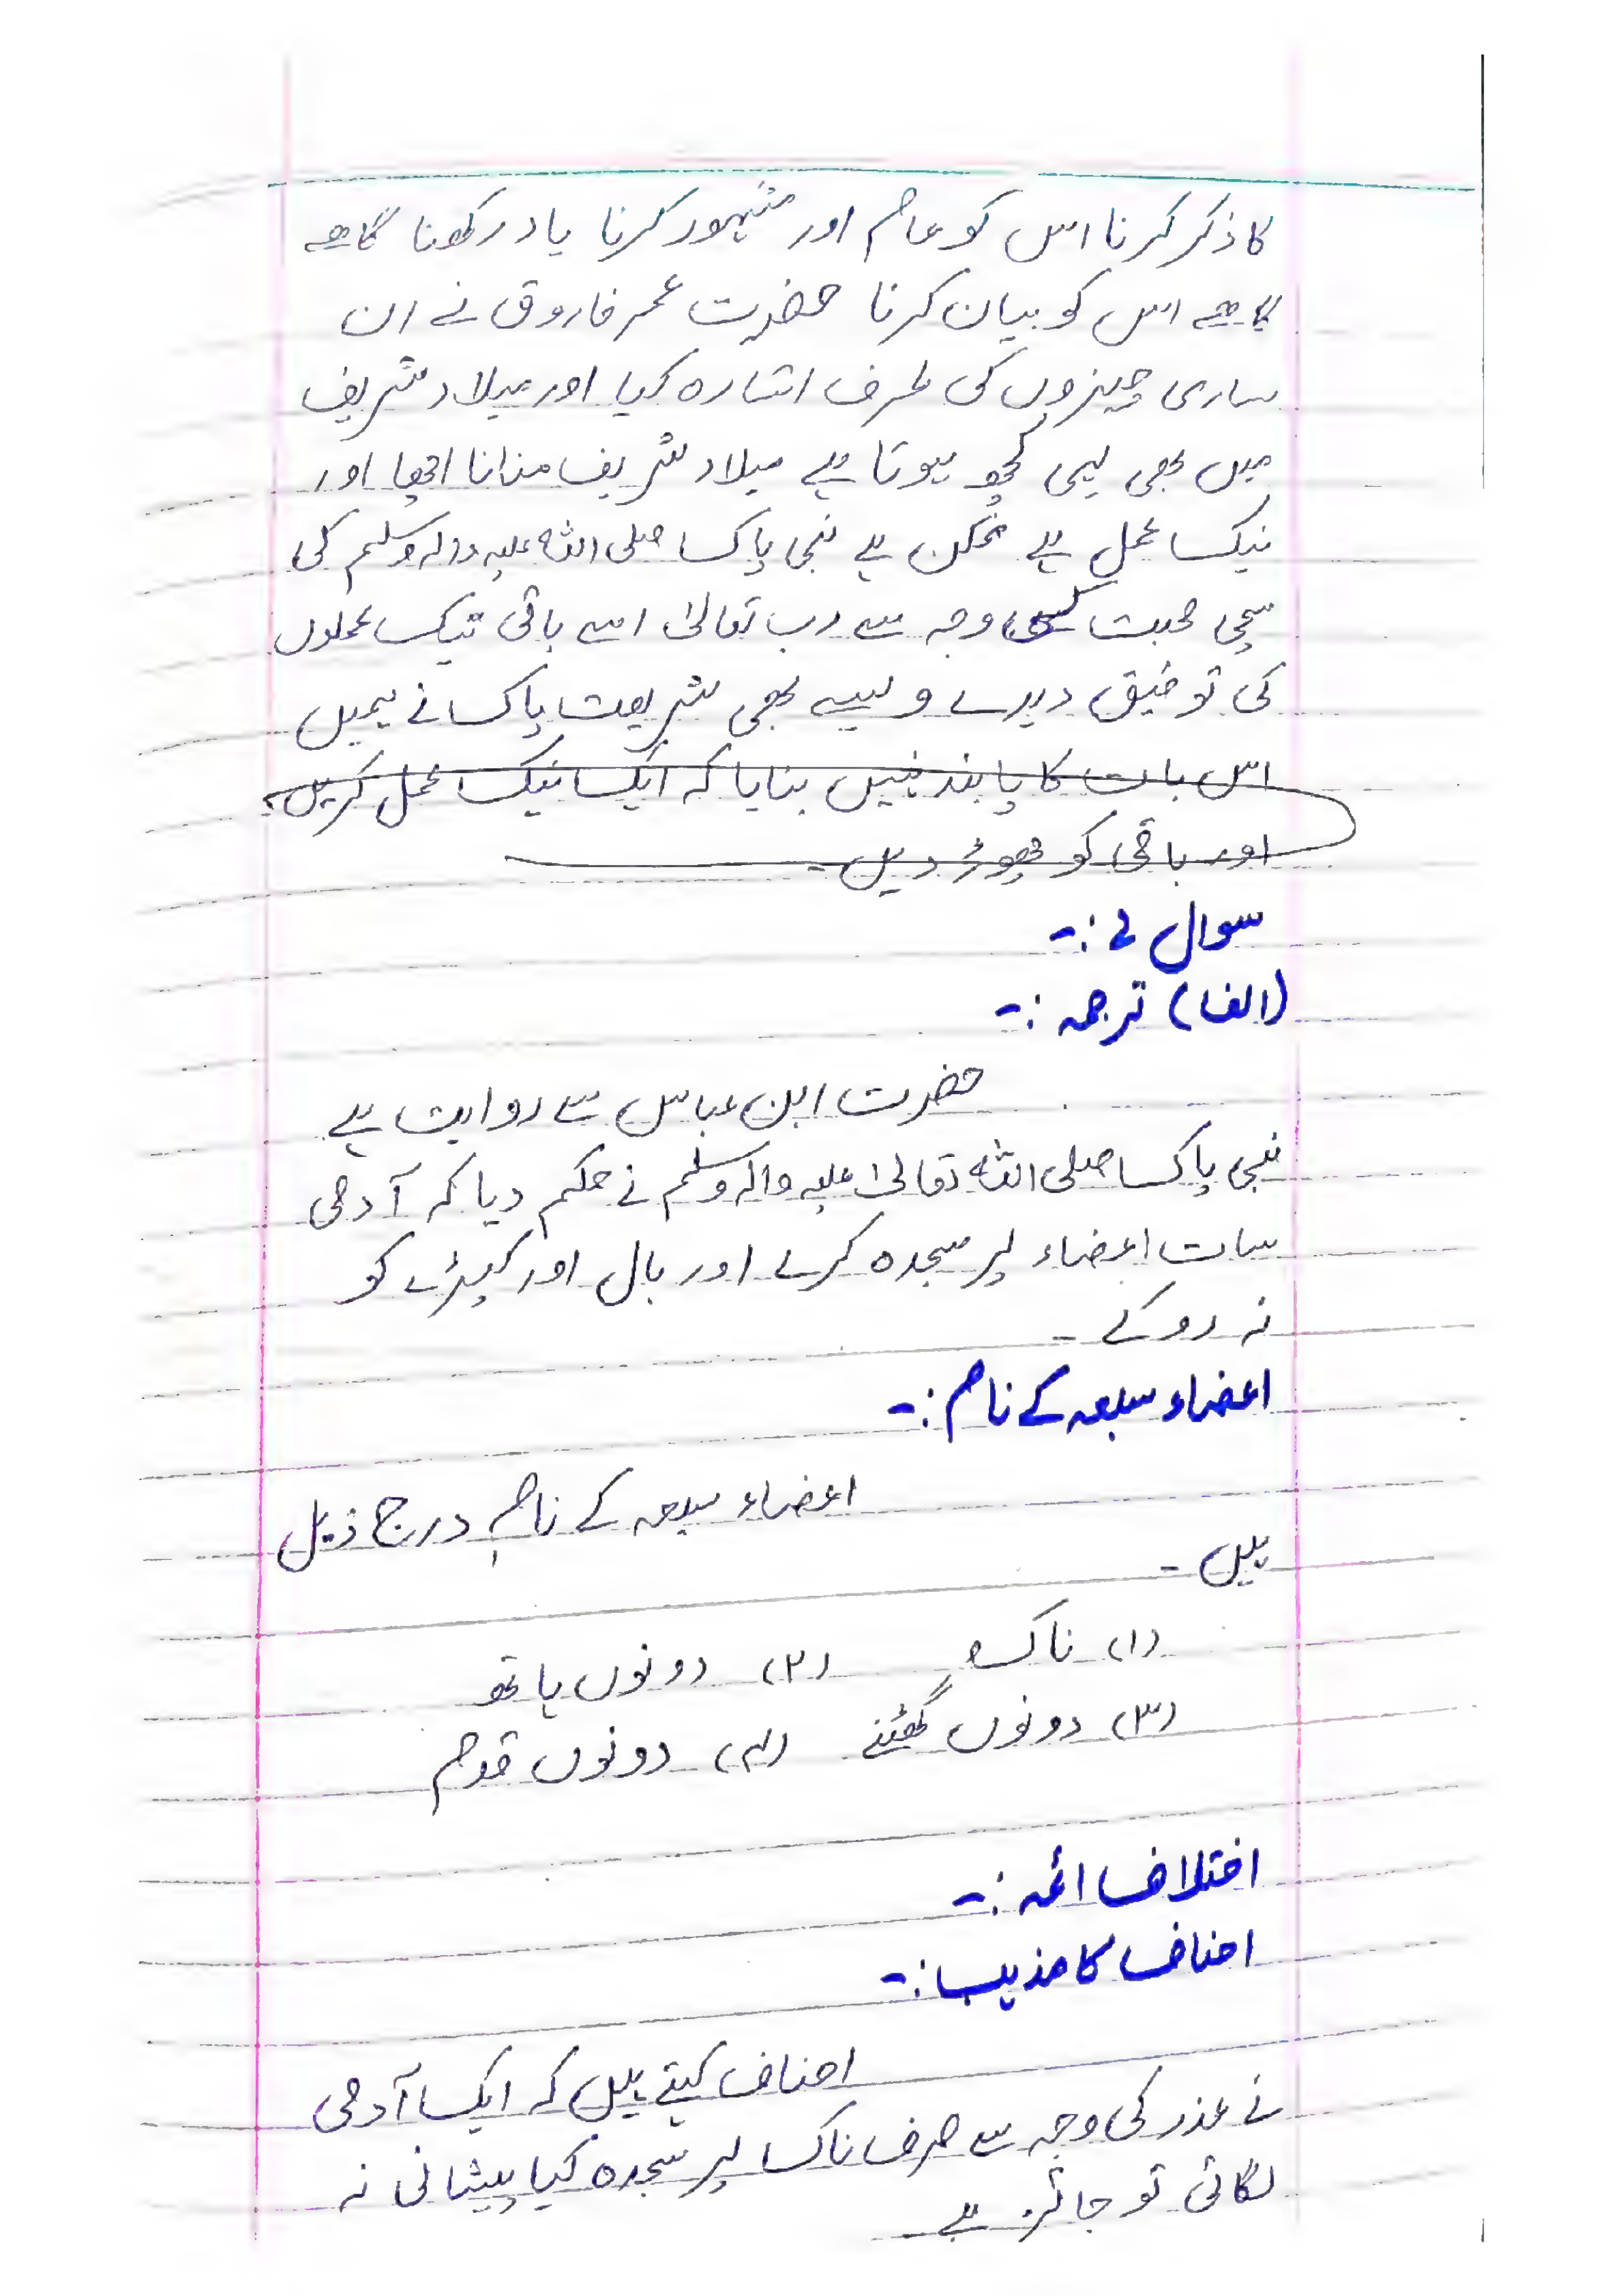 کا ذکر کرنا اس کو عام اور مشہور کرنا یاد رکھنا گاہے
گاہے اس کو بیان کرنا حضرت عمر فاروق نے ان
ساری چیزوں کی طرف اشارہ کیا اور میلاد شریف
میں بھی یہی کچھ ہوتا ہے میلاد شریف منانا اچھا اور
نیک عمل ہے ممکن ہے نبی پاک صلی اللہ علیہ والہ وسلم کی
سچی محبت کی وجہ سے رب تعالیٰ اسے باقی نیک عملوں
کی توفیق دیدے ویسے بھی شریعت پاک نے ہمیں
اس بات کا پابند نہیں بنایا کہ ایک نیک عمل کریں
اور باقی کو چھوڑ دیں۔
سوال :-
(الف) ترجمہ :-
حضرت ابن عباس سے روایت ہے
نبی پاک صلی اللہ تعالیٰ علیہ والہ وسلم نے حکم دیا کہ آدمی
سات اعضاء پر سجدہ کرے اور بال اور کپڑے کو
نہ روکے ۔
اعضاء سبعہ کے نام :-
اعضاء سبعہ کے نام درج ذیل
ہیں ۔
(۱) ناک (۲) دونوں ہاتھ
(۳) دونوں گھٹنے (۴) دونوں قدم
اختلاف ائمہ :-
احناف کا مذہب :-
احناف کہتے ہیں کہ ایک آدمی
نے عذر کی وجہ سے صرف ناک پر سجدہ کیا پیشانی نہ
لگائی تو جائز ہے